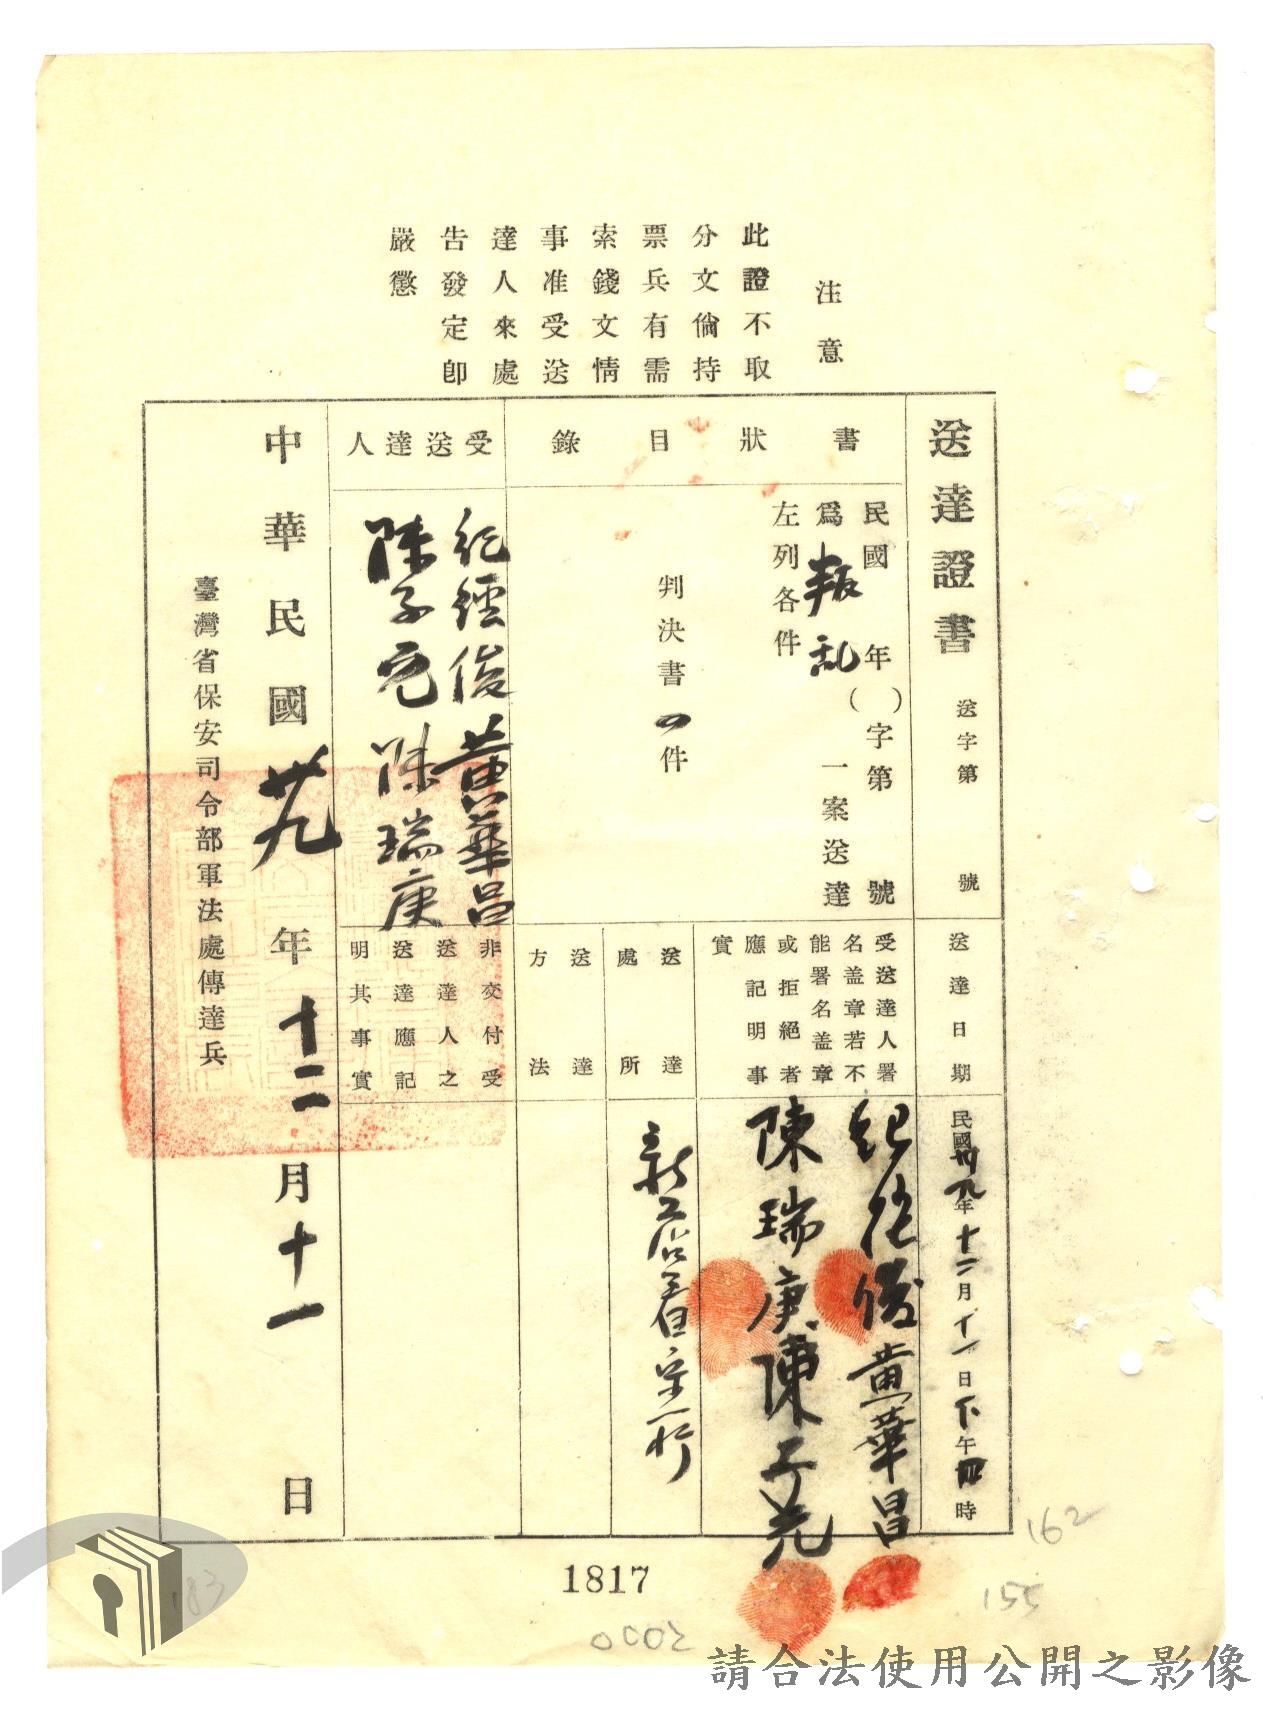 注意
此證不取
分文倘持
票兵有需
索錢文情
事准受送
達人來處
告發定卽
嚴懲
送達證書 送字第 號
書狀目錄
民國 年( )字第 號
爲叛乱一案送達
左列各件
判決書 件
受送達人
紀經俊 黃華昌
陳子元 陳瑞庚
送達日期
民國卅九年十二月十一日下午四時
受送達人署
名盖章若不
能署名盖章
或拒絕者
應記明事
實
紀經俊 黃華昌
陳瑞庚 陳子元
送達
處所
新店看守所
送達
方法
非交付受
送達人之
送達應記
明其事實
中華民國卅九年十二月十一日
臺灣省保安司令部軍法處傳達兵
1817
0002
162
155
183
請合法使用公開之影像